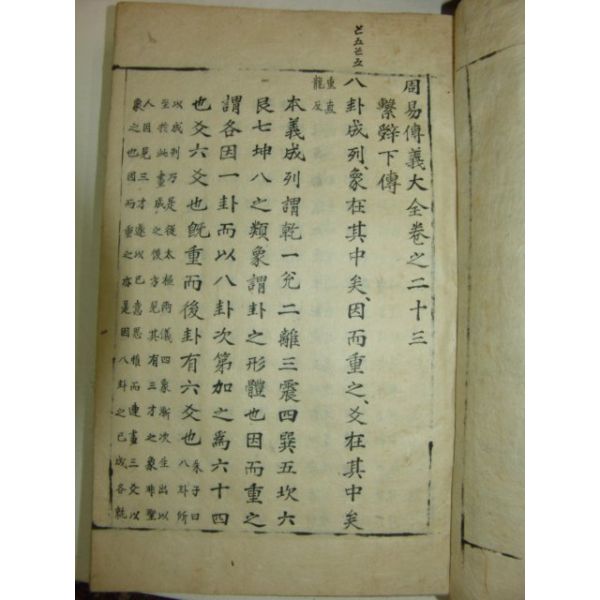 周易傳義大全卷之二十三
繫辤下傳
八卦成列、象在其中矣、因而重之、爻在其中矣
重直
龍反
本義成列謂乾一兌二離三震四巽五坎六
艮七坤八之類象謂卦之形體也因而重之
謂各因一卦而以八卦次第加之爲六十四
也爻六爻也旣重而後卦有六爻也
朱子曰
八卦所
以成列乃是從太極兩儀四象漸次生出以
至於此畫成之後方見其有三才之象非聖
人因見三才遂以己意思惟而連畫三爻以
象之也因而重之亦是因八卦之已成各就